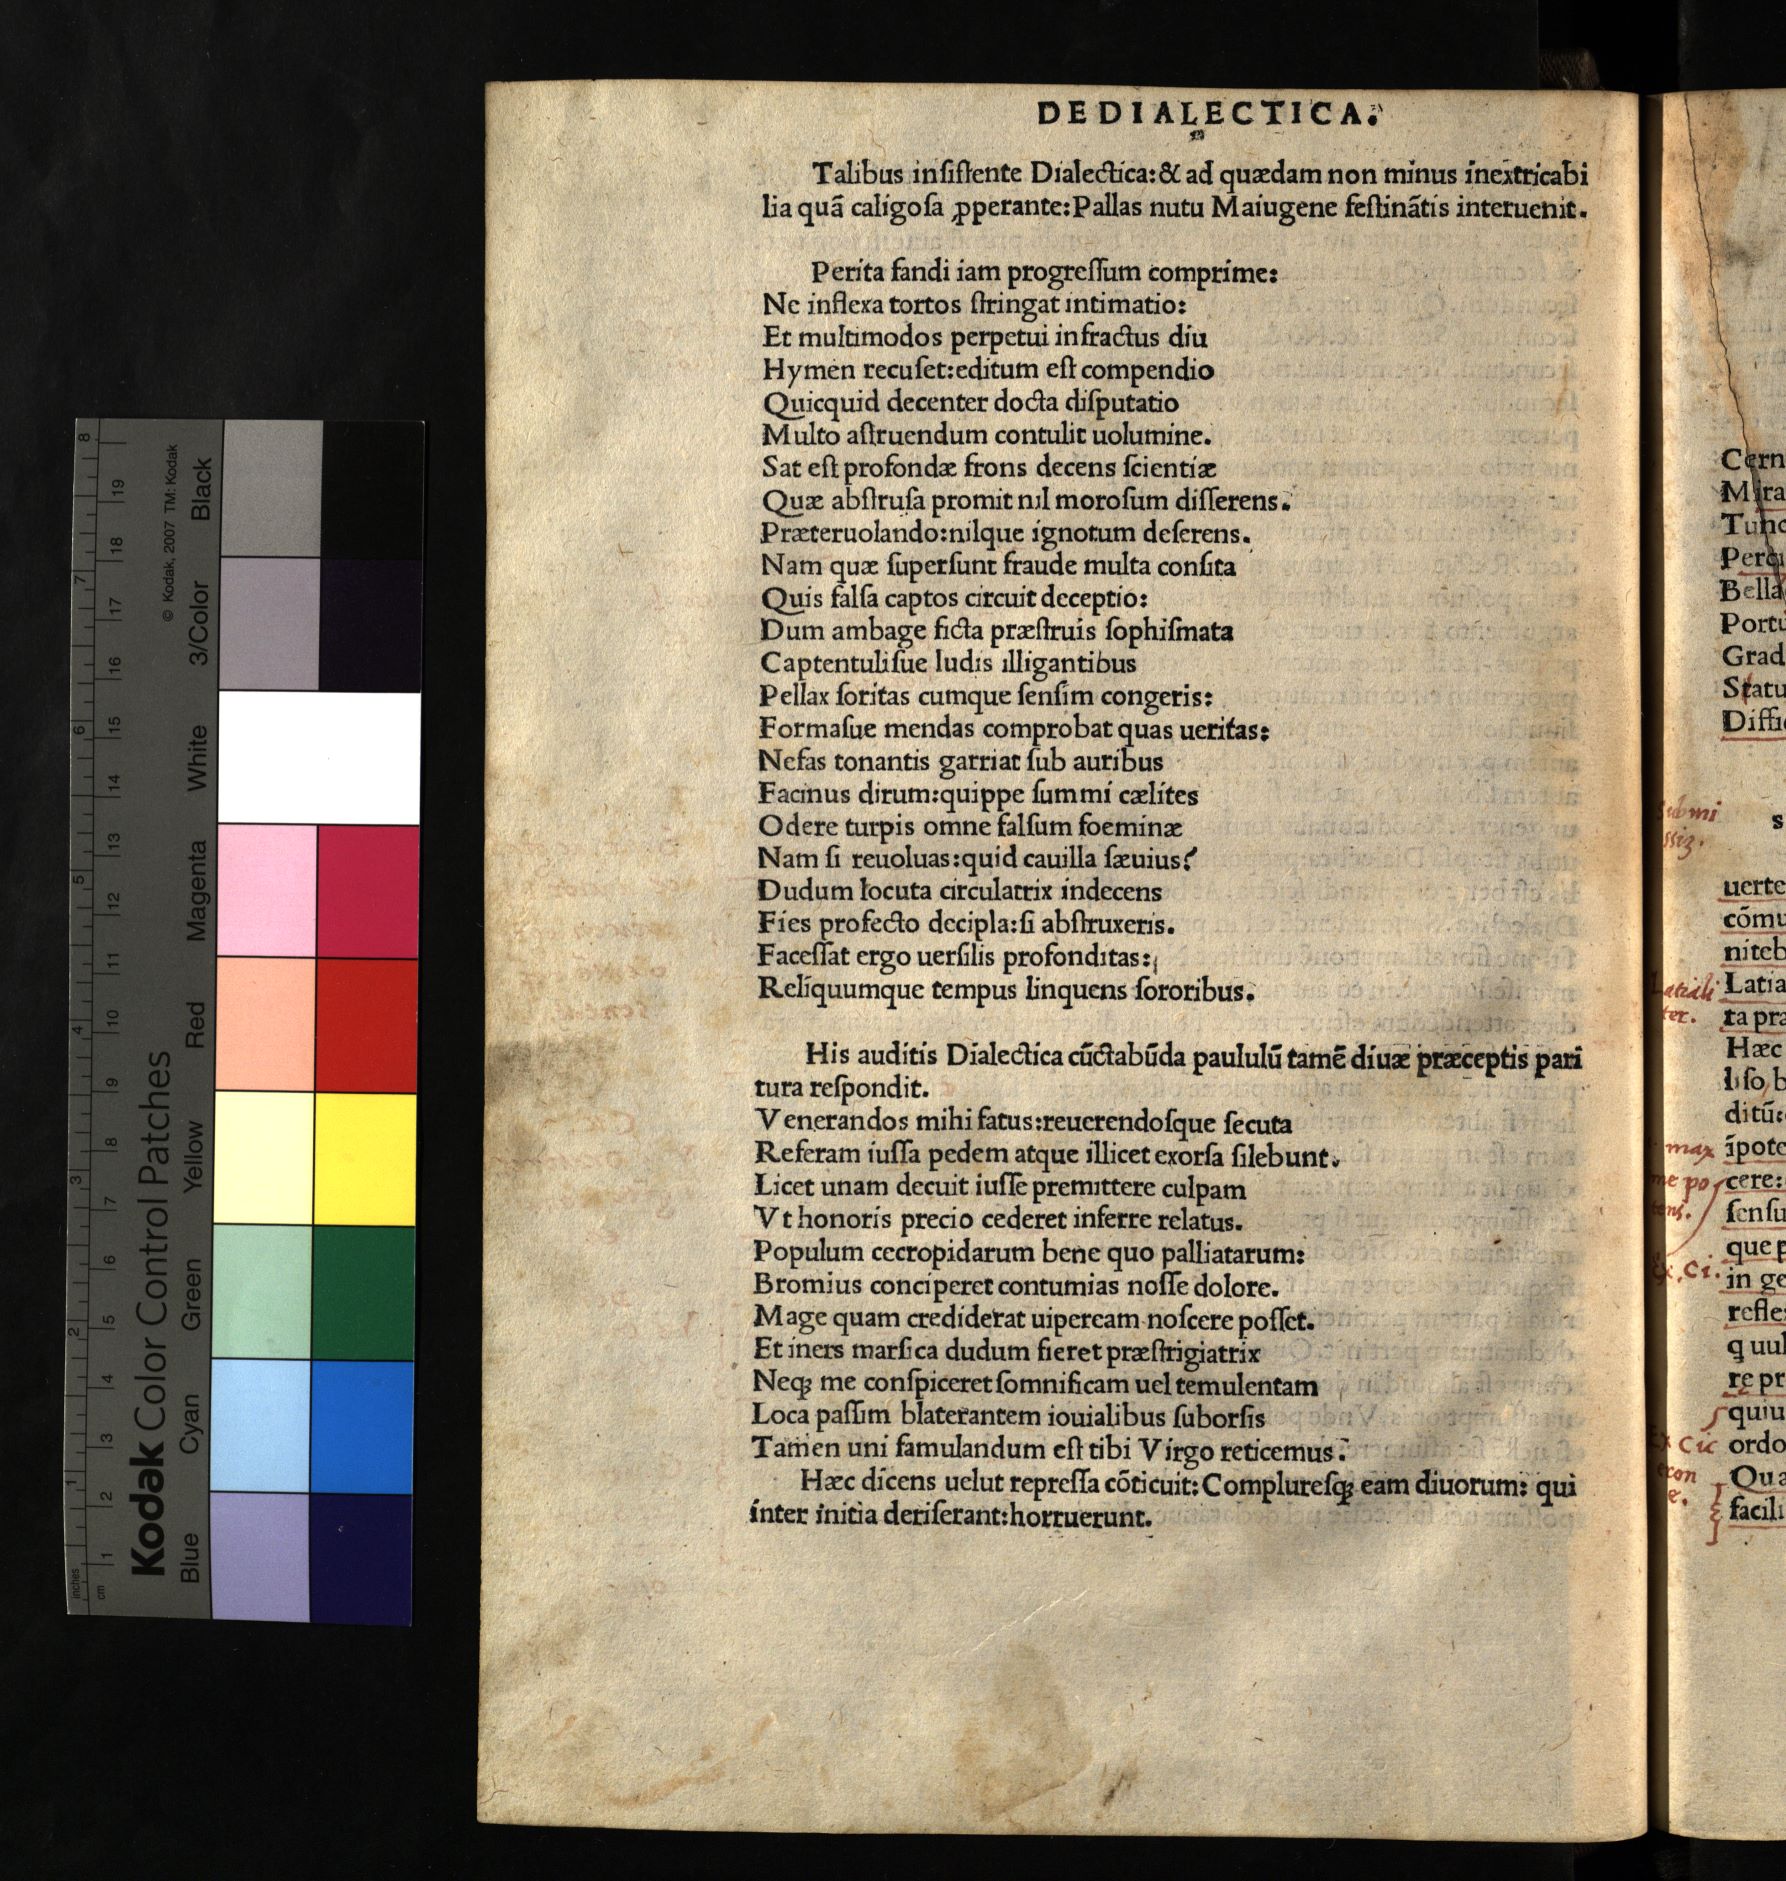 DEDIALECTICA.
Talibus insiſtente Dialectica:& ad quædam non minus inextricabi
lia quã caligoſa ꝓperante:Pallas nutu Maiugene feſtinãtis interuenit.
Perita fandi iam progreſſum comprime:
Ne inflexa tortos ſtringat intimatio:
Et multimodos perpetui infractus diu
Hymen recuſet:editum eſt compendio
Quicquid decenter docta diſputatio
Multo aſtruendum contulit uolumine.
Sat eſt profondæ frons decens ſcientiæ
Quæ abſtruſa promit nil moroſum diſſerens.
Præteruolando:nilque ignotum deſerens.
Nam quæ ſuperſunt fraude multa conſita
Quis falſa captos circuit deceptio:
Dum ambage ficta præſtruis ſophiſmata
Captentuliſue ludis illigantibus
Pellax ſoritas cumque ſenſim congeris:
Formaſue mendas comprobat quas ueritas:
Nefas tonantis garriat ſub auribus
Facinus dirum:quippe ſummi cælites
Odere turpis omne falſum foeminæ
Nam ſi reuoluas:quid cauilla ſæuius?
Dudum locuta circulatrix indecens
Fies profecto decipla:ſi abſtruxeris.
Faceſſat ergo uerſilis profonditas:
Reliquumque tempus linquens ſororibus.
His auditis Dialectica cũctabũda paululũ tamẽ diuæ præceptis pari
tura reſpondit.
Venerandos mihi fatus:reuerendoſque ſecuta
Referam iuſſa pedem atque illicet exorſa ſilebunt.
Licet unam decuit iuſſe premittere culpam
Vt honoris precio cederet inferre relatus.
Populum cecropidarum bene quo palliatarum:
Bromius conciperet contumias noſſe dolore.
Mage quam crediderat uipeream noſcere poſſet.
Et iners marſica dudum fieret præſtrigiatrix
Neqꝫ me conſpiceret ſomnificam uel temulentam
Loca paſſim blaterantem iouialibus ſuborſis
Tamen uni famulandum eſt tibi Virgo reticemus.
Hæc dicens uelut repreſſa cõticuit:Complureſqꝫ eam diuorum: qui
inter initia deriſerant:horruerunt.
Cern
Mira
Tunc
Percu
Bella
Portu
Grad
Statu
Diffi
ſubmi
ſſiz.
s
uerte
cõmu
niteb
Latiali
ter.
Latia
ta pra
Hæc
l ſo b
ditũ:
max
ĩpote
me po
cere:
tens.
ſenſu
que p
Ex. Ci.
in ge
refle
q uul
re pr
quiu
Ex Cic
ordo
econ
Qua
e.
facili
Kodak Color Control Patches
© Kodak, 2007 TM: Kodak
Blue
Cyan
Green
Yellow
Red
Magenta
White
3/Color
Black
inches
1
2
3
4
5
6
7
8
cm
1
2
3
4
5
6
7
8
9
10
11
12
13
14
15
16
17
18
19